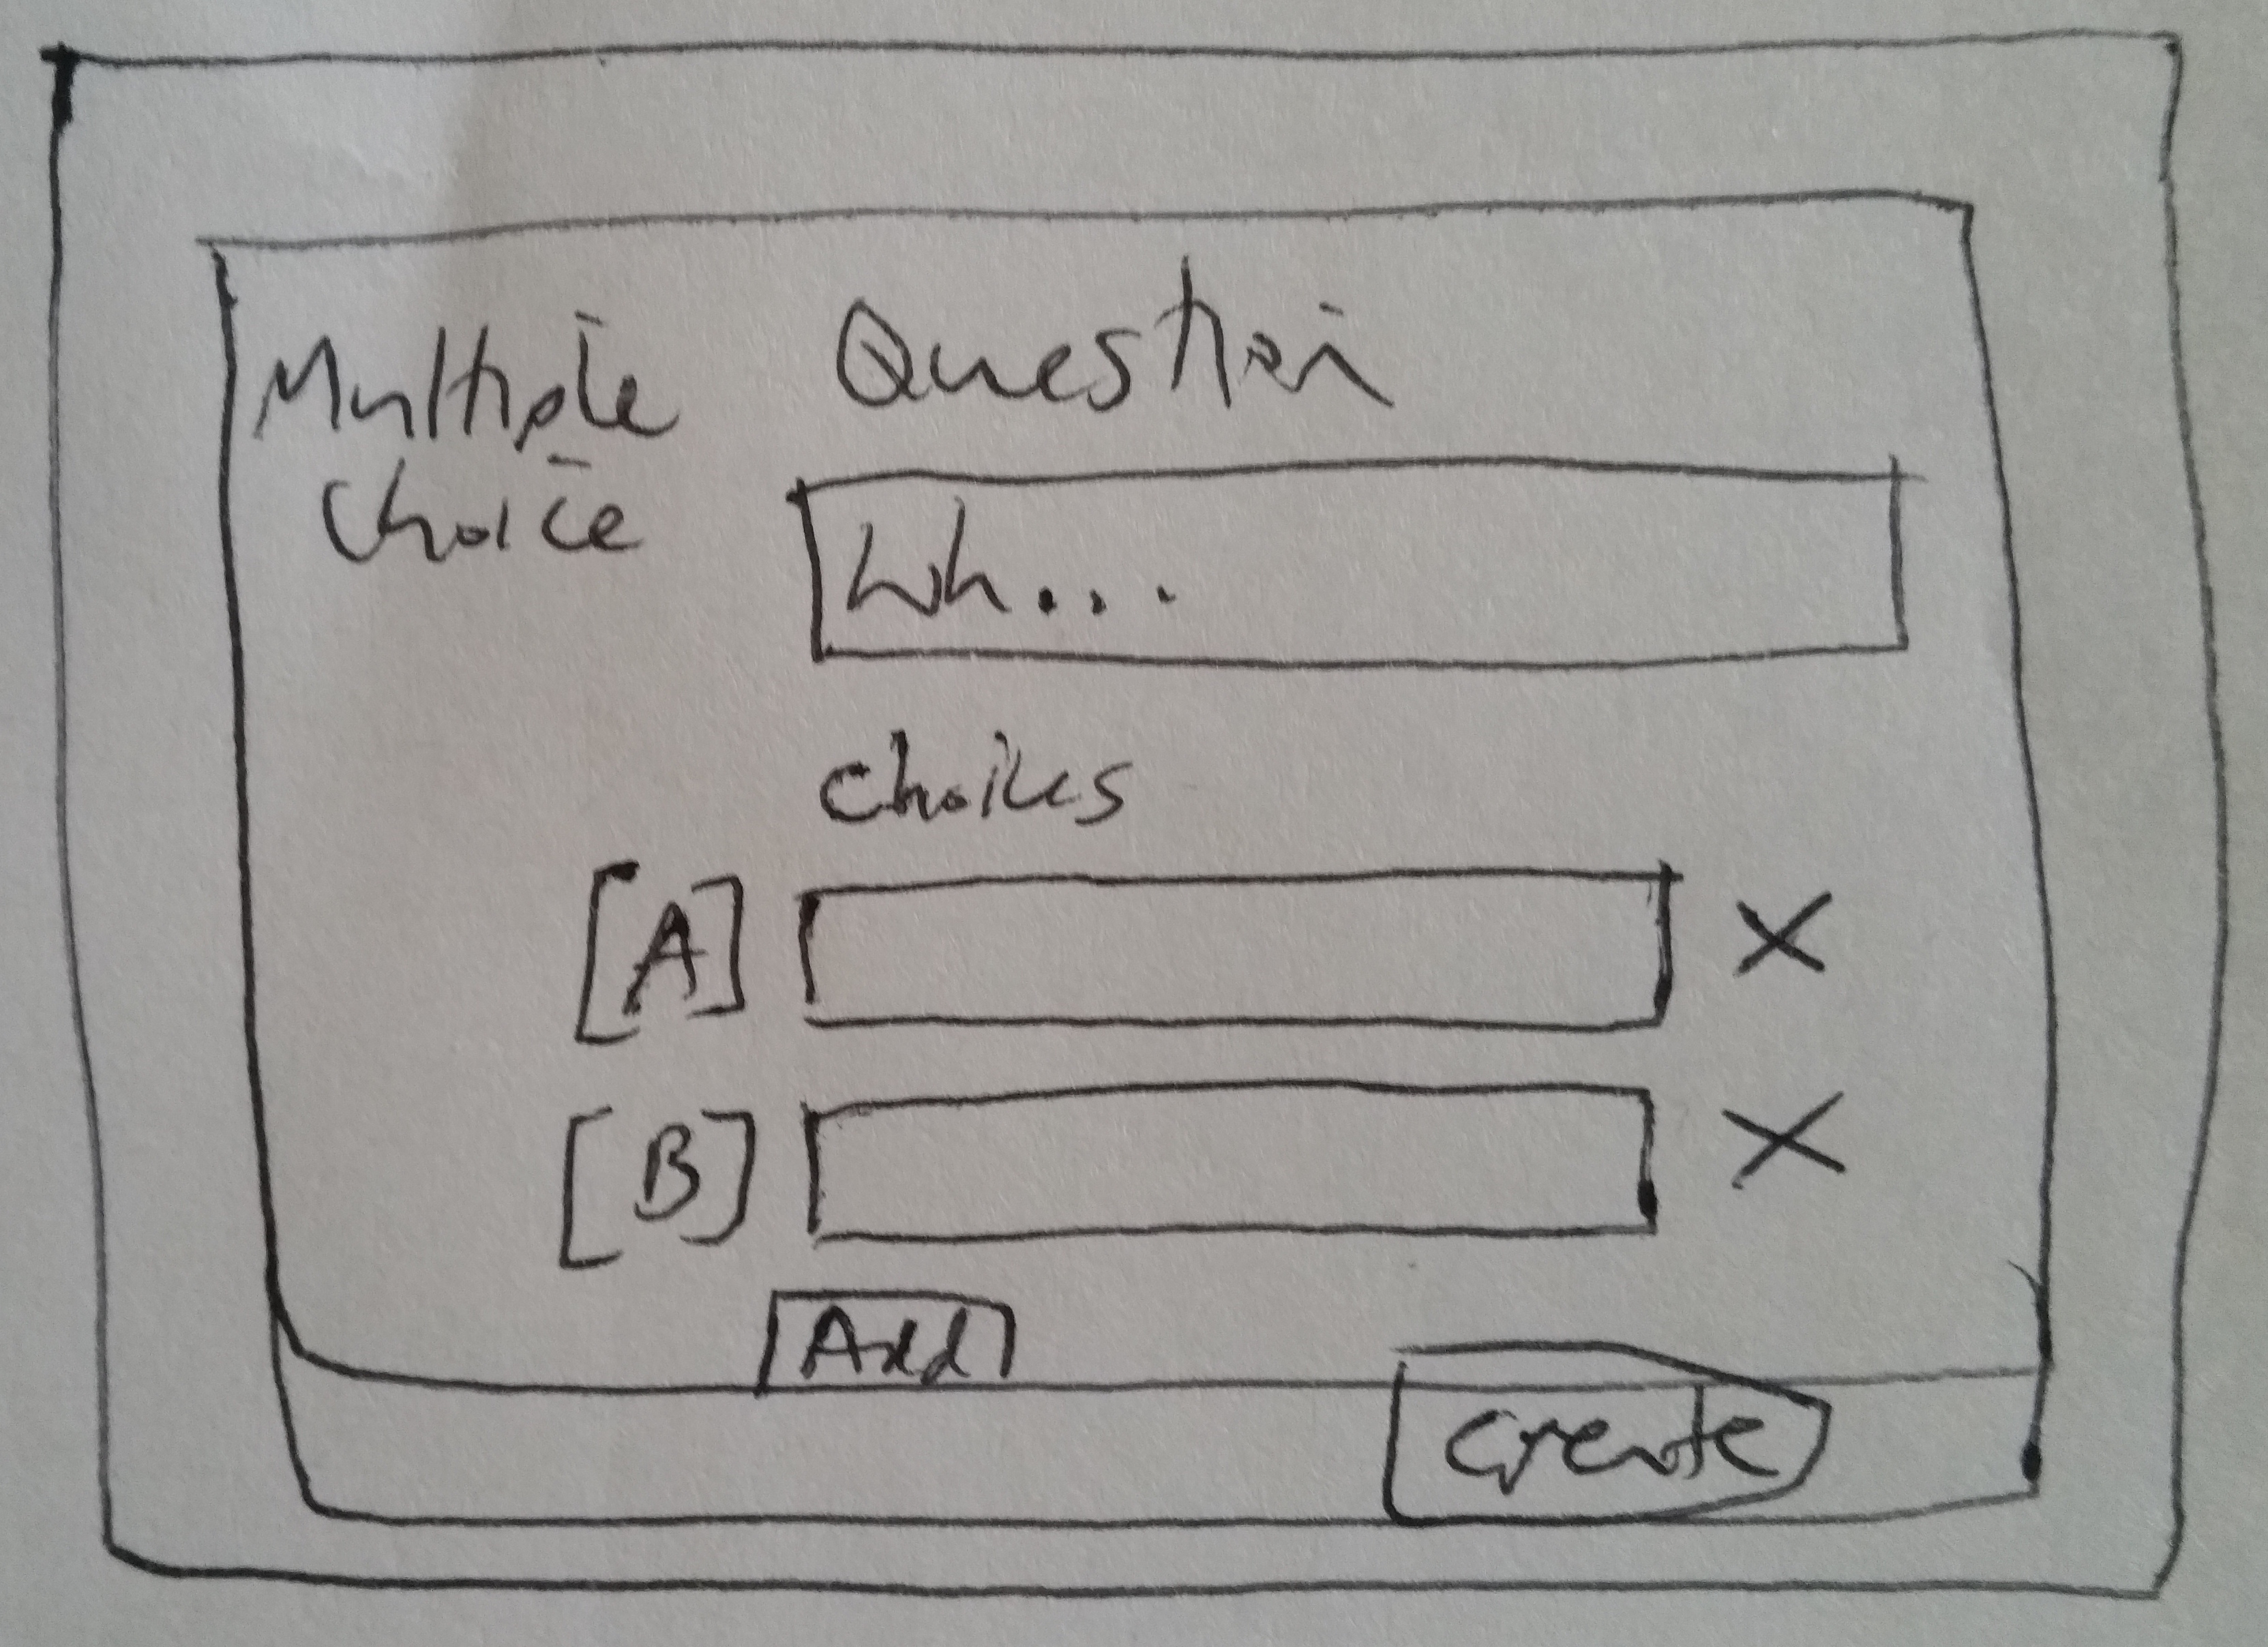 Multiple
Choice
Question
Wh...
Choices
[A] X
[B] X
Add
Create